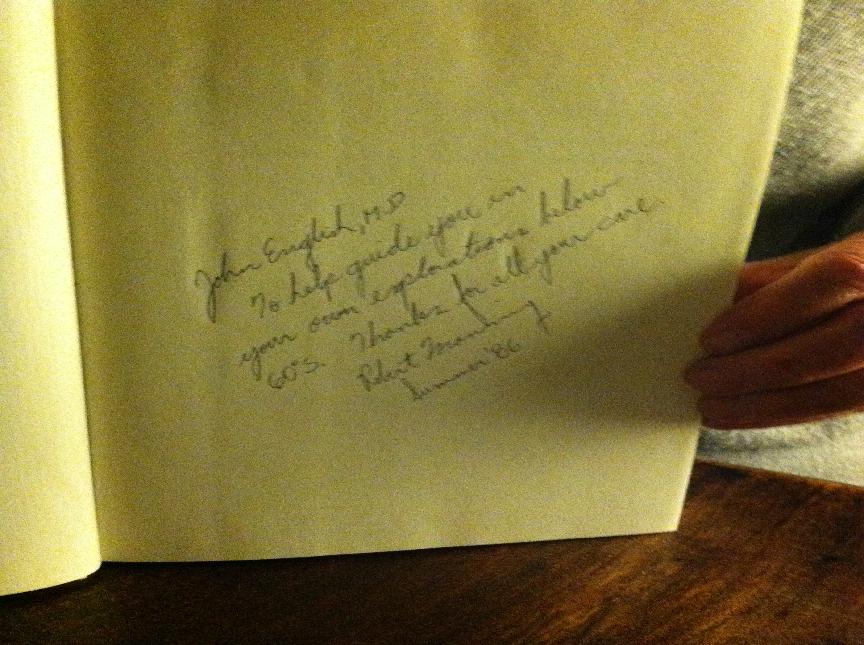 John English, M.D
To help guide you in
your own explorations below
60°S. Thanks for all your care.
Robert Manning
Summer '86